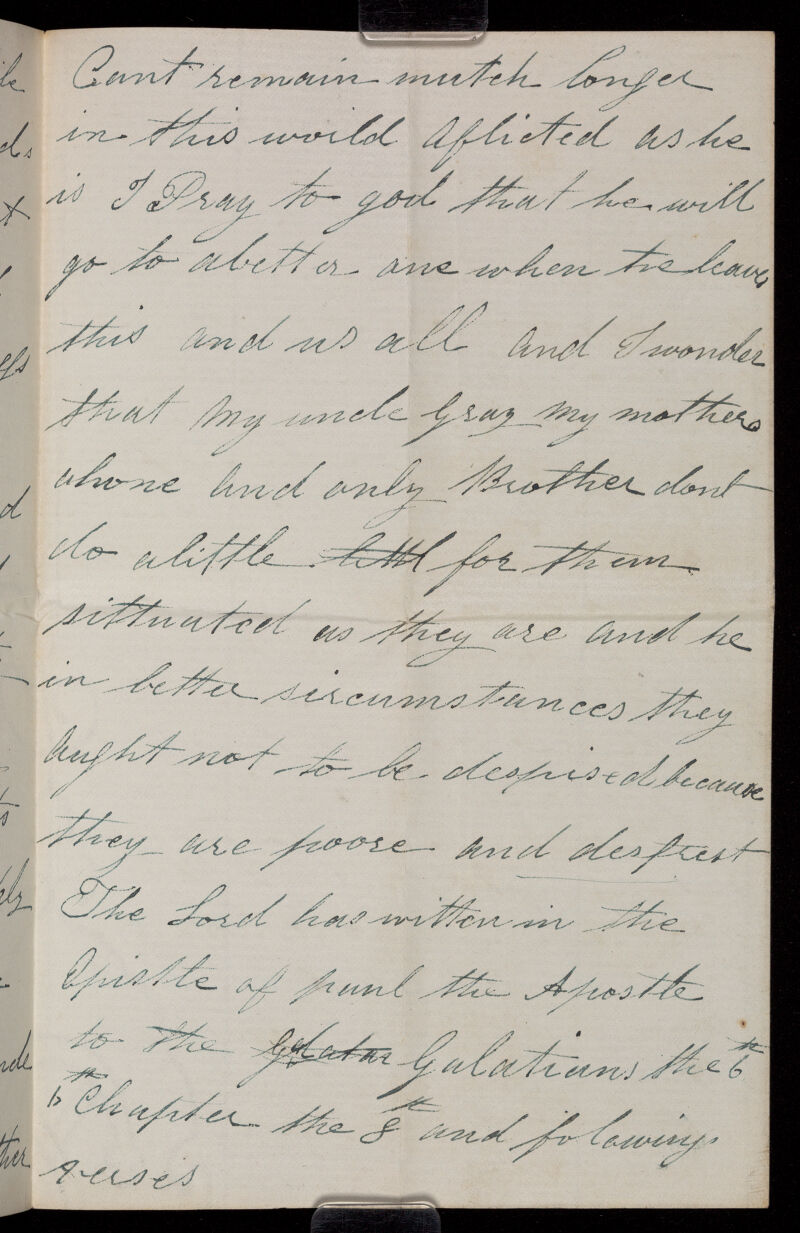 Cant remain mutch longer
in this worild aflicted as he
is I Pray to god that he will
go to abetter one when he leaves
this and us all and I wonder
that my uncle Gray my mothers
and only Brother dont
do alittle littl for them
sittuated as they are and he
in better sircumstances they
aught not to be despised because
they are poore and
The Lord has witten in the
Epistle of paul the Apostle
to the Galatians the 6th
6th Chapter the 8th and folowing
verses